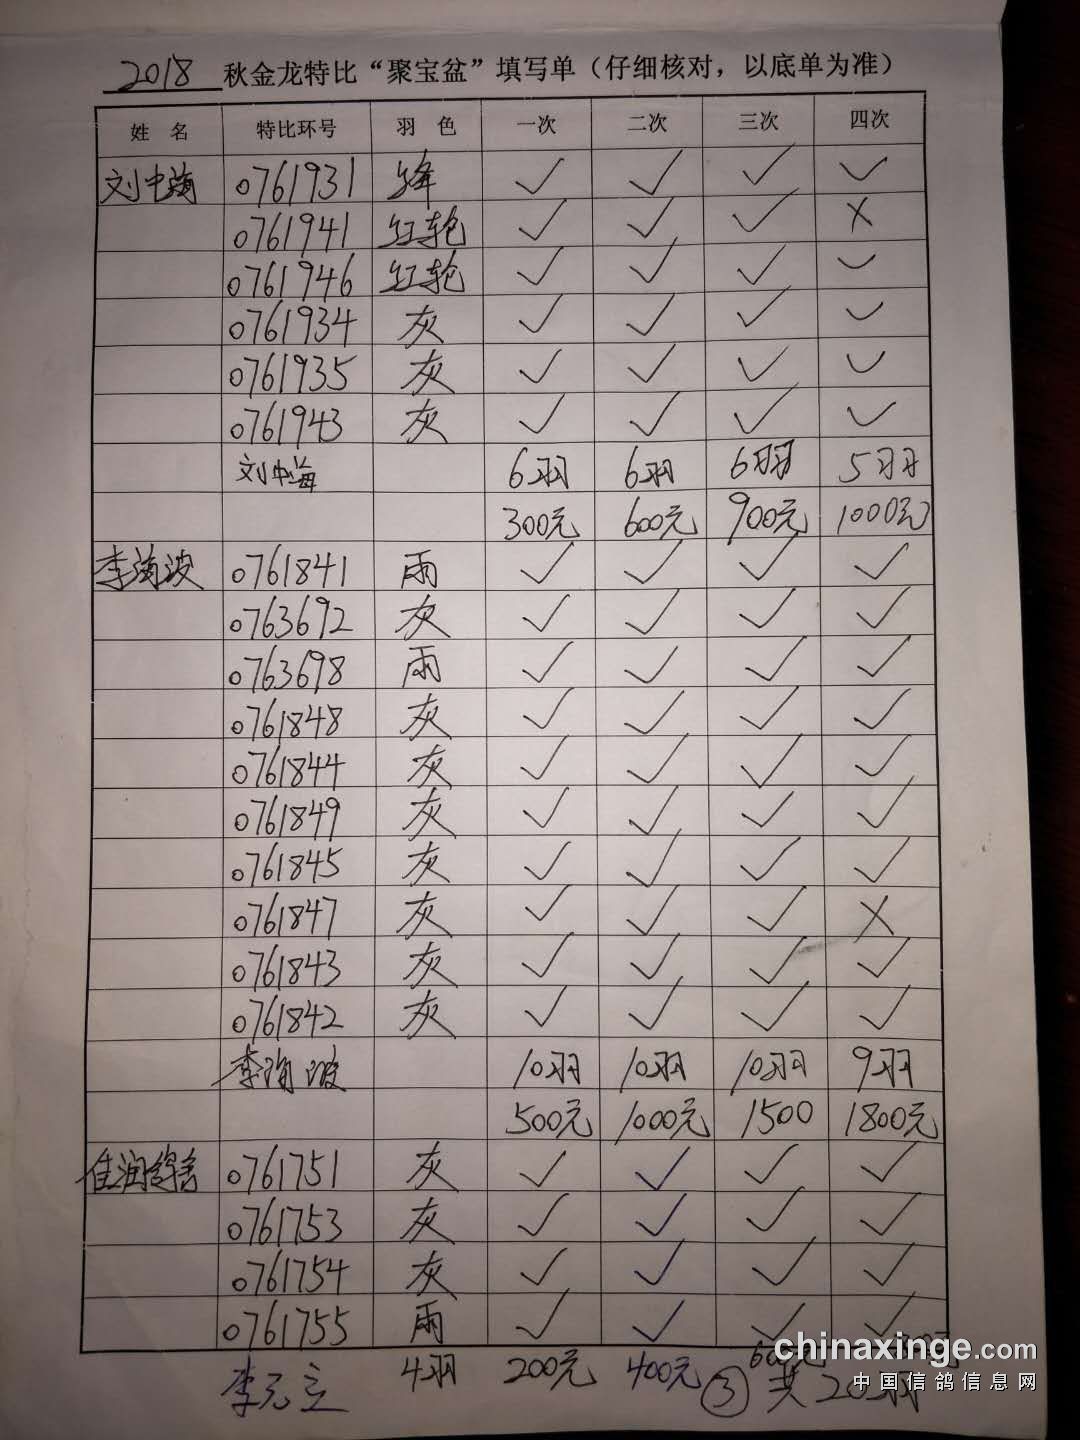 2018 秋金龙特比“聚宝盆”填写单（仔细核对，以底单为准）
姓 名 特比环号 羽 色 一次 二次 三次 四次
刘中海 0761931 绛 ✓ ✓ ✓ ✓
0761941 红轮 ✓ ✓ ✓ ×
0761946 红轮 ✓ ✓ ✓ ✓
0761934 灰 ✓ ✓ ✓ ✓
0761935 灰 ✓ ✓ ✓ ✓
0761943 灰 ✓ ✓ ✓ ✓
刘中海 6羽 6羽 6羽 5羽
300元 600元 900元 1000元
李海波 0761841 雨 ✓ ✓ ✓ ✓
0763692 灰 ✓ ✓ ✓ ✓
0763698 雨 ✓ ✓ ✓ ✓
0761848 灰 ✓ ✓ ✓ ✓
0761844 灰 ✓ ✓ ✓ ✓
0761849 灰 ✓ ✓ ✓ ✓
0761845 灰 ✓ ✓ ✓ ✓
0761847 灰 ✓ ✓ ✓ ×
0761843 灰 ✓ ✓ ✓ ✓
0761842 灰 ✓ ✓ ✓ ✓
李海波 10羽 10羽 10羽 9羽
500元 1000元 1500 1800元
佳润鸽舍 0761751 灰 ✓ ✓ ✓ ✓
0761753 灰 ✓ ✓ ✓ ✓
0761754 灰 ✓ ✓ ✓ ✓
0761755 雨 ✓ ✓ ✓ ✓
李元立 4羽 200元 400元
③ 共20羽
chinaxinge.com
中国信鸽信息网